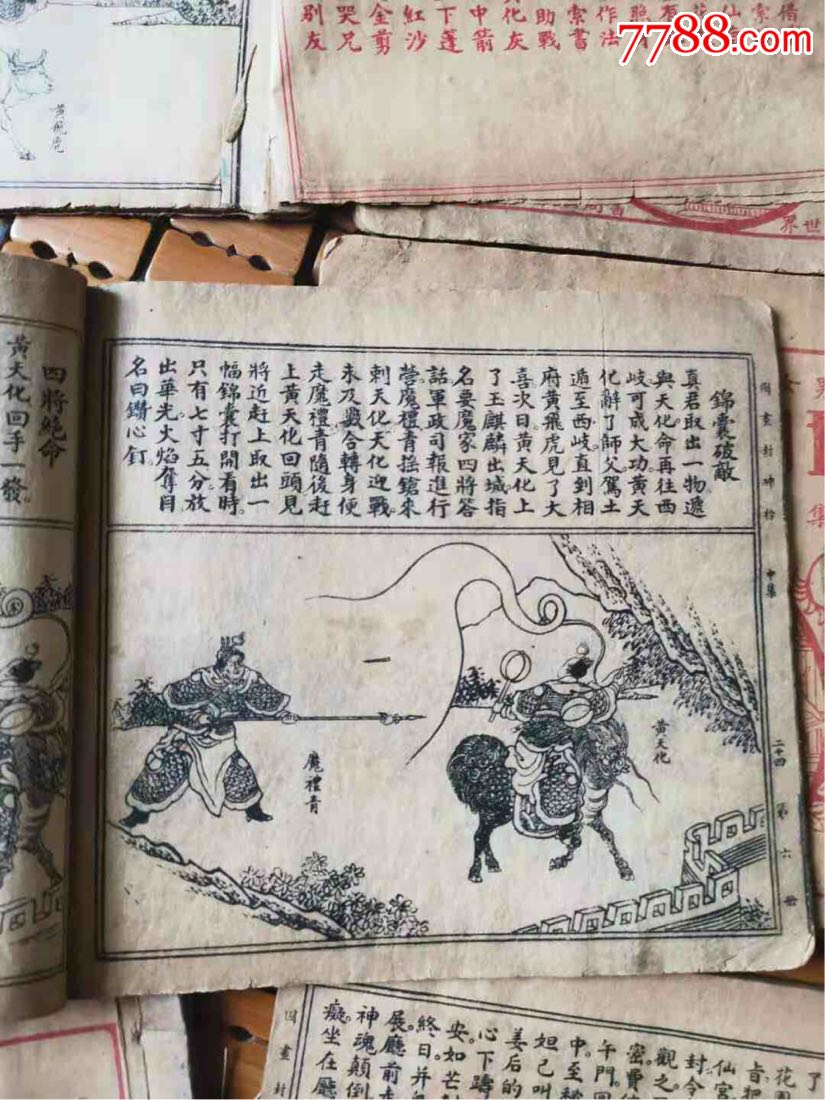 7788.com
借
索
仙
作法
索書
助戰
化灰
中箭
下蓬
紅沙
金剪
哭兄
別友
黃飛虎
界世
錦囊破敵
真君取出一物遞
與天化命再往西
岐可成大功黃天
化辭了師父駕土
遁至西岐直到相
府黃飛虎見了大
喜次日黃天化上
了玉麒麟出城指
名要魔家四將答
話軍政司報進行
營魔禮青搖鎗來
刺天化天化迎戰
未及數合轉身便
走魔禮青隨後赶
上黃天化回頭見
將近赶上取出一
幅錦囊打開有時
只有七寸五分放
出華光火焰奪目
名曰鑽心釘
圖畫封神榜
中集
二十四
第六冊
魔禮青
黃天化
四將絕命
黃天化回手一發
集
了
花園
旨把
仙宮
封令
觀之
密費
午門
中至
妲己叫
姜后的
心下躊
安如芒
終日并
展廳前
神魂顛倒
癡坐在廳
圖畫封